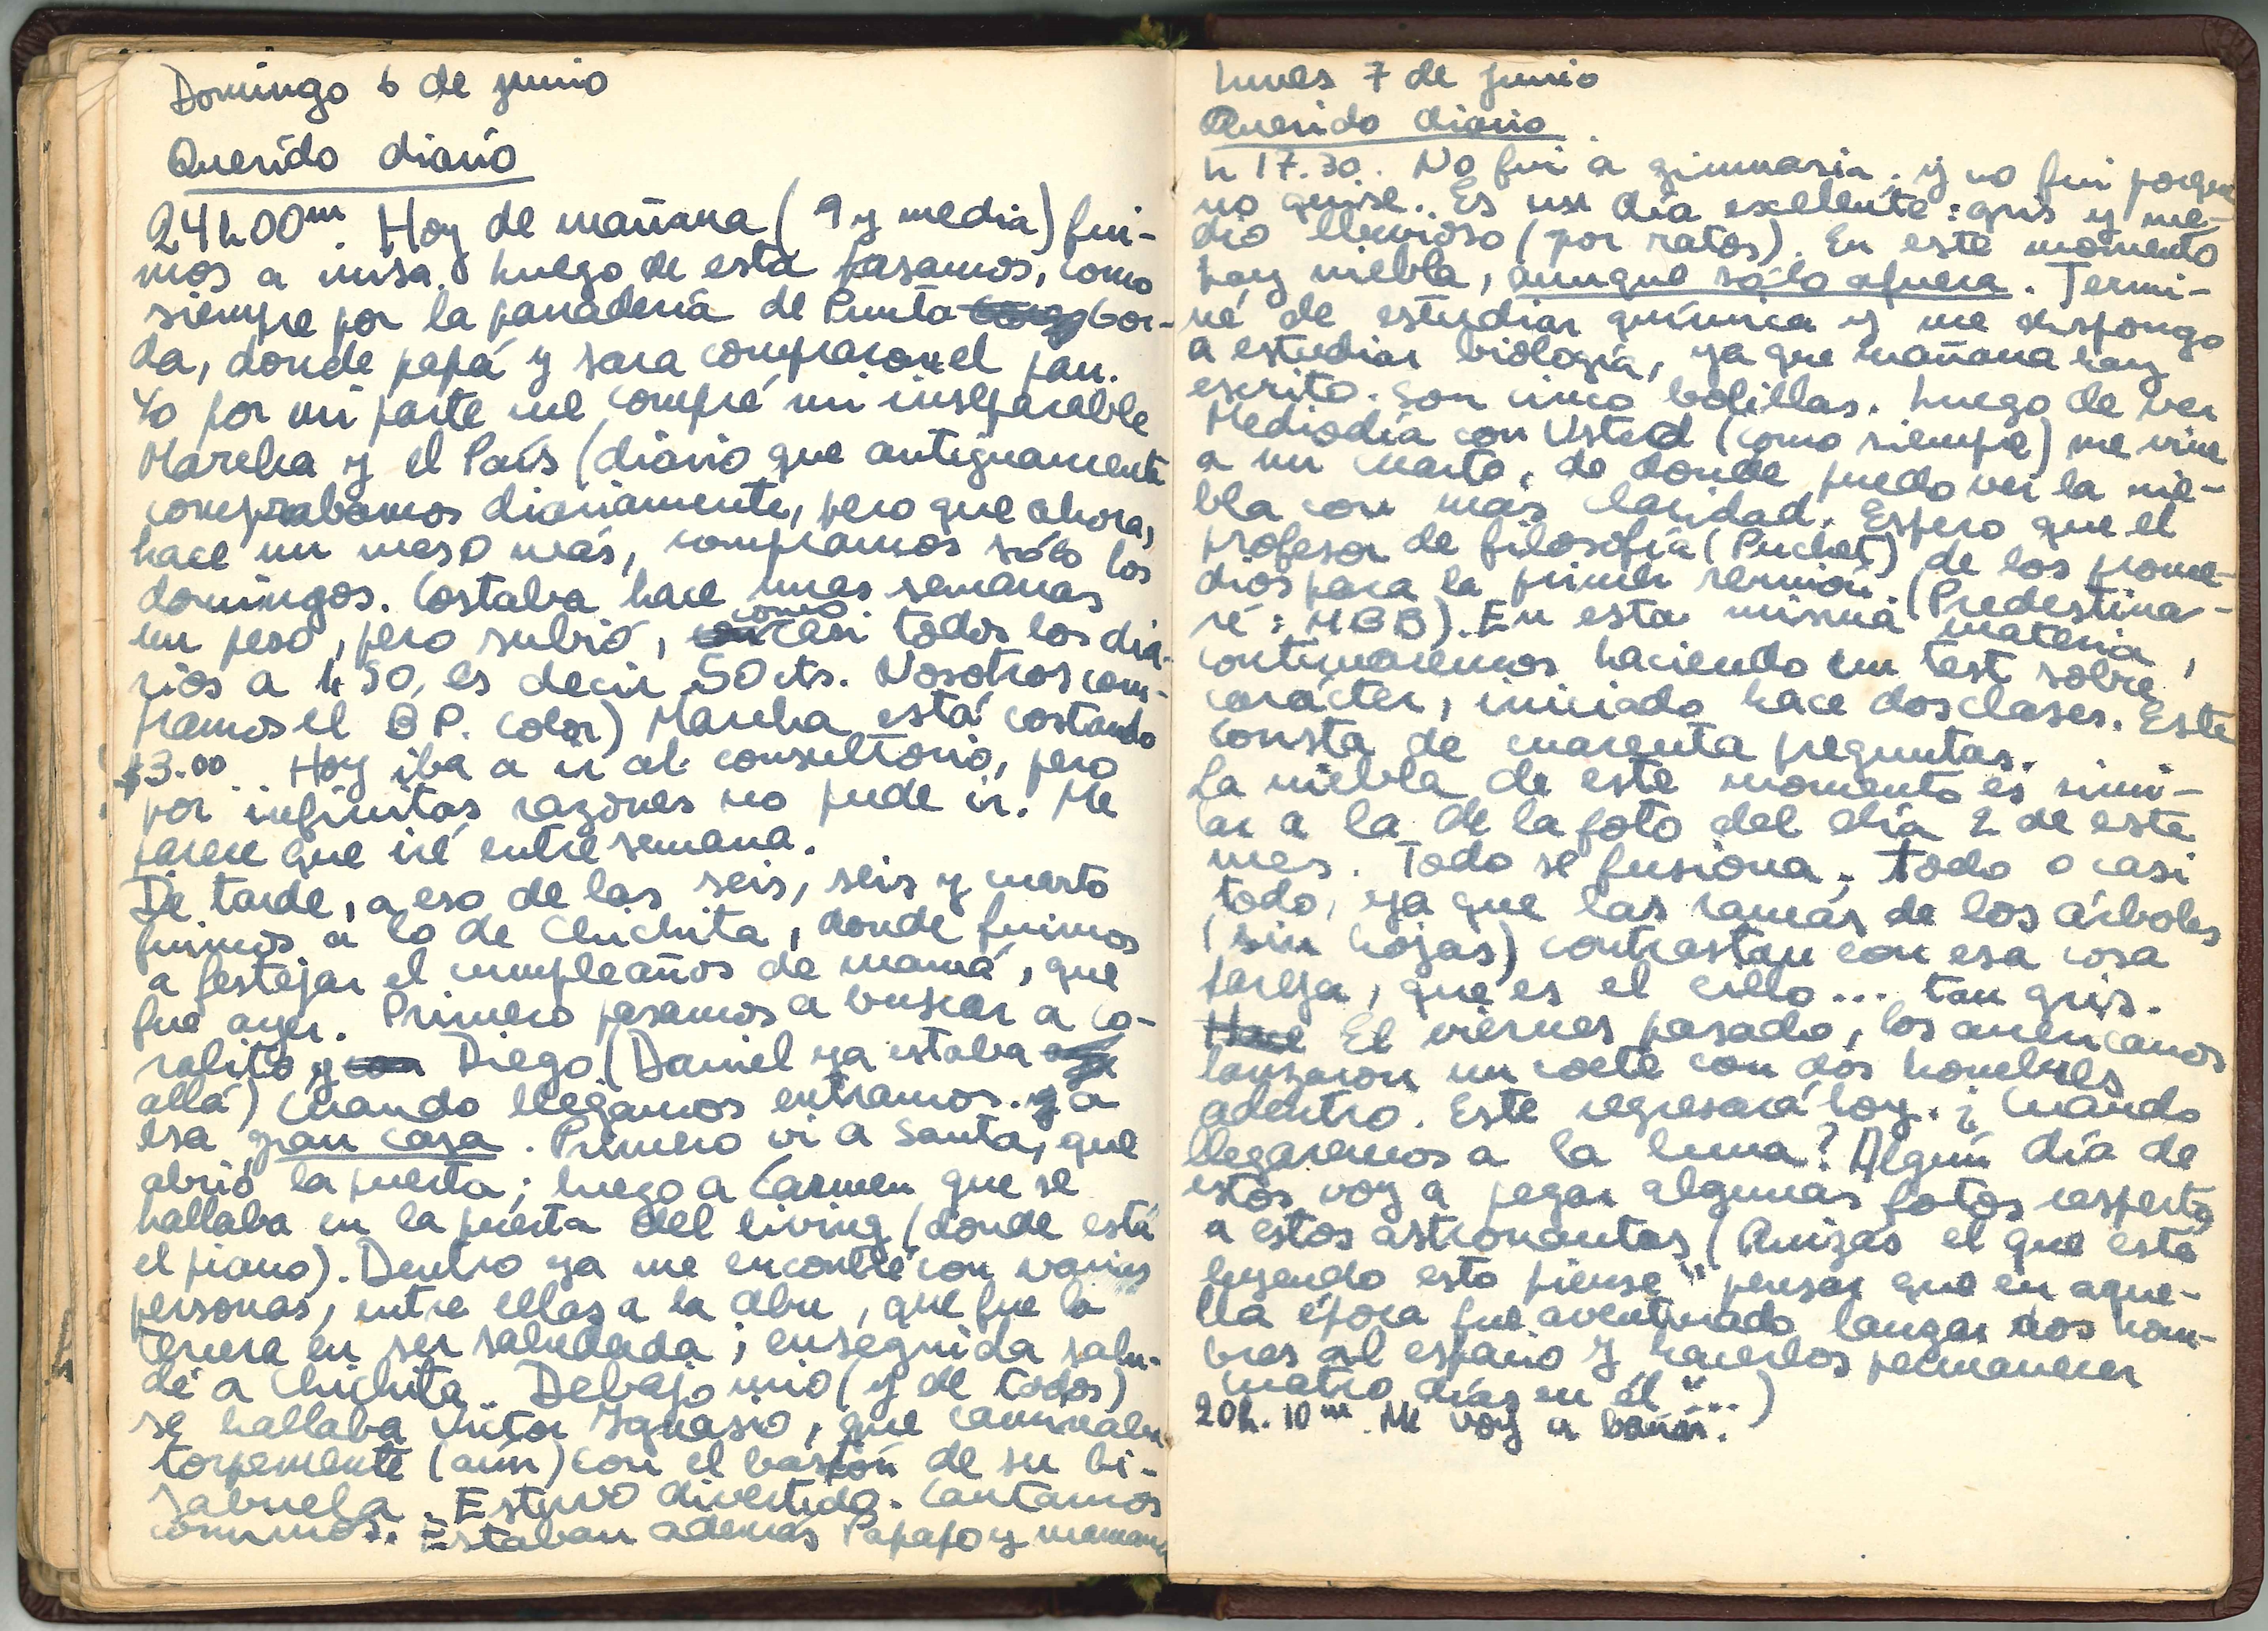 Domingo 6 de junio
Querido diario
24h00m. Hoy de mañana (9 y media) fui-
mos a misa. Luego de esta pasamos, como
siempre por la panadería de Punta Gor-
da, donde papá y Sara compraron el pan.
Yo por mi parte me compré mi inseparable
Marcha y el País (diario que antiguamente
comprabamos diariamente, pero que ahora,
hace un mes o más, compramos sólo los
domingos. Costaba hace unas semanas
un peso, pero subió, como casi todos los dia-
rios a 1,50, es decir 50 cts. Nosotros com-
pramos el B P. Color) Marcha está costando
$3.00. Hoy iba a ir al consultorio, pero
por infinitas razones no pude ir. Me
parece que iré entre semana.
De tarde, a eso de las seis, seis y cuarto
fuimos a lo de Chichita, donde fuimos
a festejar el cumpleaños de mamá, que
fue ayer. Primero pasamos a buscar a Co-
ralito y Diego (Daniel ya estaba
allá) Cuando llegamos entramos a
esa gran casa. Primero vi a Santa, que
abrió la puerta; luego a Carmen que se
hallaba en la puerta del living (donde está
el piano). Dentro ya me encontré con varias
personas, entre ellas a la abu, que fue la
tercera en ser saludada; enseguida salu-
dé a Chichita. Debajo mio (y de todos)
se hallaba Víctor Ignasio, que caminaba
torpemente (aún) con el bastón de su bi-
sabuela. Estuvo divertido. Cantamos
comimos. Estaban además Papapo y mamama
Lunes 7 de junio
Querido diario
h 17.30. No fui a gimnasia. y no fui porque
no quise. Es un día exelente: gris y me-
dio lluvioso (por ratos). En este momento
hay niebla, aunque sólo afuera. Termi-
né de estudiar química y me dispongo
a estudiar biología, ya que mañana hay
escrito. Son cinco bolillas. Luego de ver
Mediodía con Usted (como siempre) me vine
a mi cuarto, de donde puedo ver la nie-
bla con más claridad. Espero que el
profesor de filosofía (Puchet) de los prome-
dios para la primer reunion. (Predestina-
ré: MBB). En esta misma materia,
continuaremos haciendo un test sobre
carácter, iniciado hace dos clases. Este
consta de cuarenta preguntas.
La niebla de este momento es simi-
lar a la de la foto del día 2 de este
mes. Todo se fusiona; todo o casi
todo, ya que las ramas de los árboles
(sin hojas) contrastan con esa cosa
pareja, que es el cielo... tan gris.
El viernes pasado, los americanos
lanzaron un coete con dos hombres
adentro. Este regresará hoy. ¿Cuándo
llegaremos a la luna? Algún día de
estos voy a pegar algunas fotos respecto
a estos astronautas (Quizás el que está
leyendo esto piense "pensar que en aque-
lla época fue aventurado lanzar dos hom-
bres al espacio y hacerlos permanecer
cuatro días en él"...)
20h. 10m. Me voy a bañar.